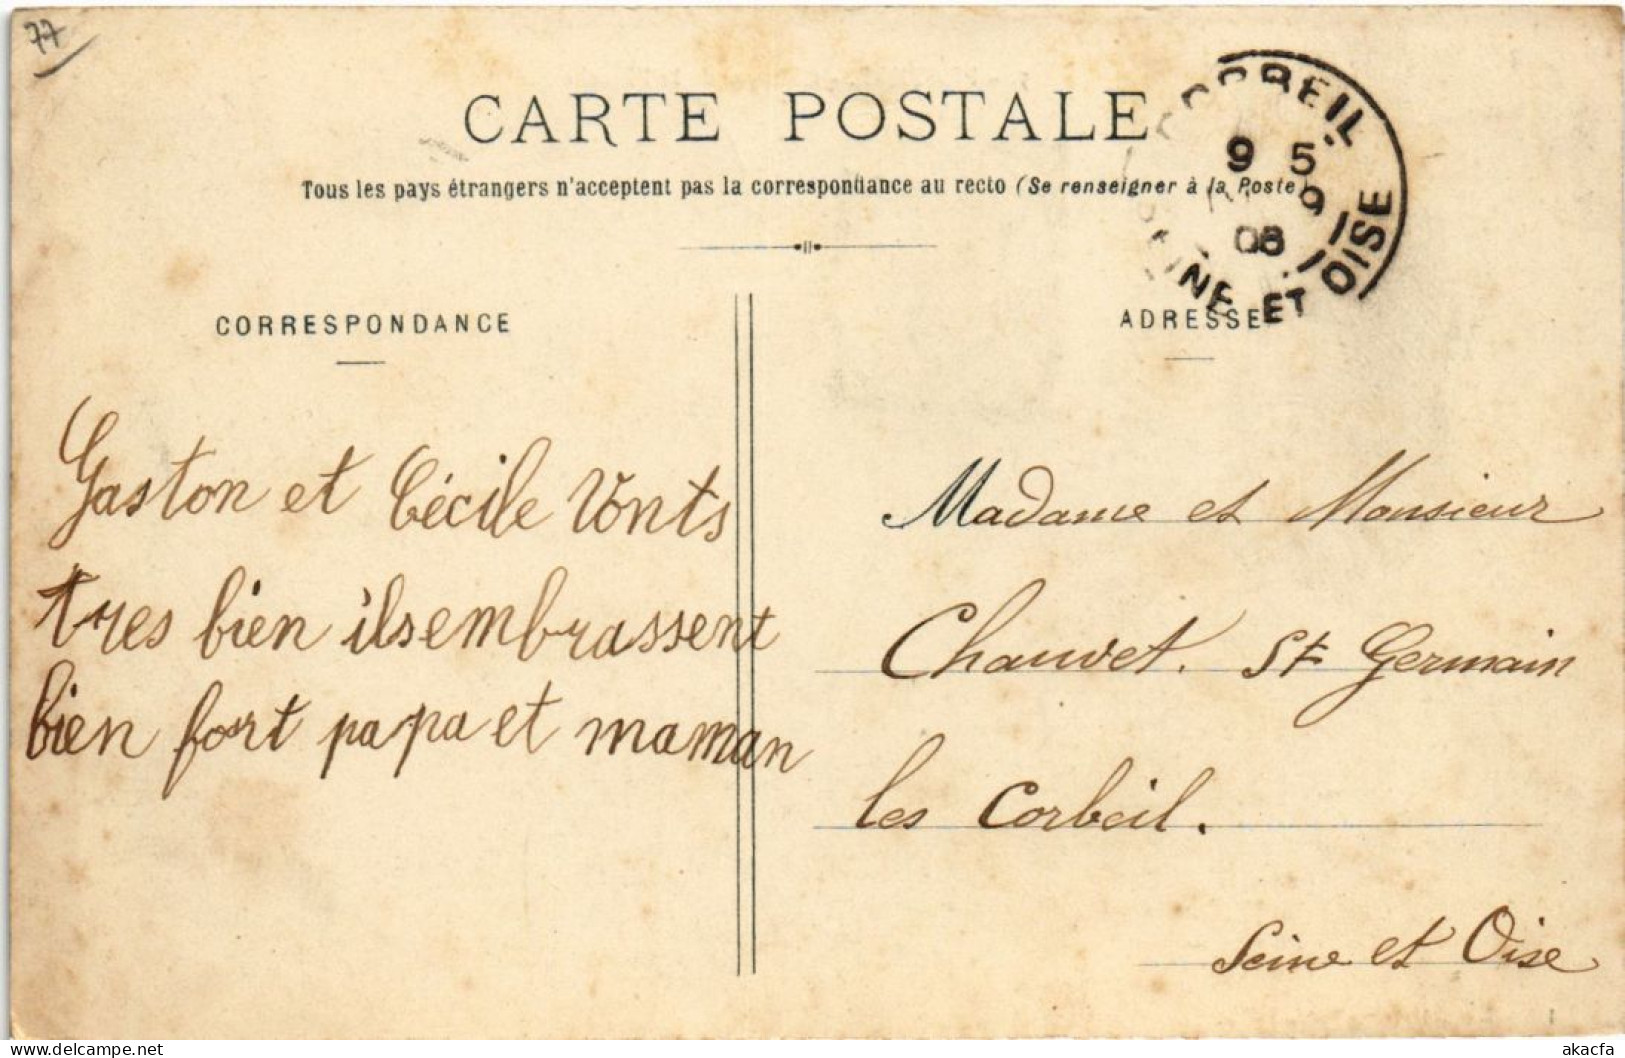 77
CARTE POSTALE
Tous les pays étrangers n'acceptent pas la correspondance au recto (Se renseigner à la Poste)
CORBEIL
9 5
9
08
SEINE ET OISE
CORRESPONDANCE
ADRESSE
Gaston et Cécile vonts
tres bien ils embrassent
bien fort papa et maman
Madame et Monsieur
Chauvet. St Germain
les Corbeil.
Seine et Oise
akacfa